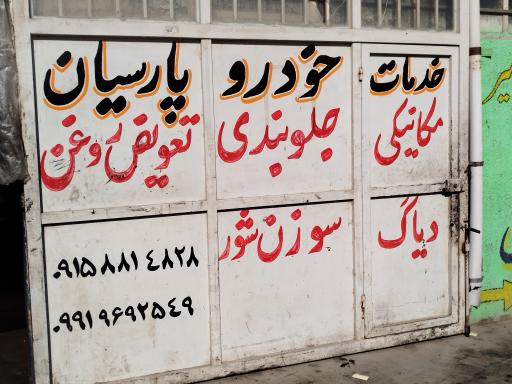 خدمات خودرو پارسیان
مکانیکی جلوبندی تعویض روغن
دیاگ سوزن شور
۰۹۱۵۸۸۱۴۸۲۸
۰۹۹۱۹۶۹۲۵۴۹